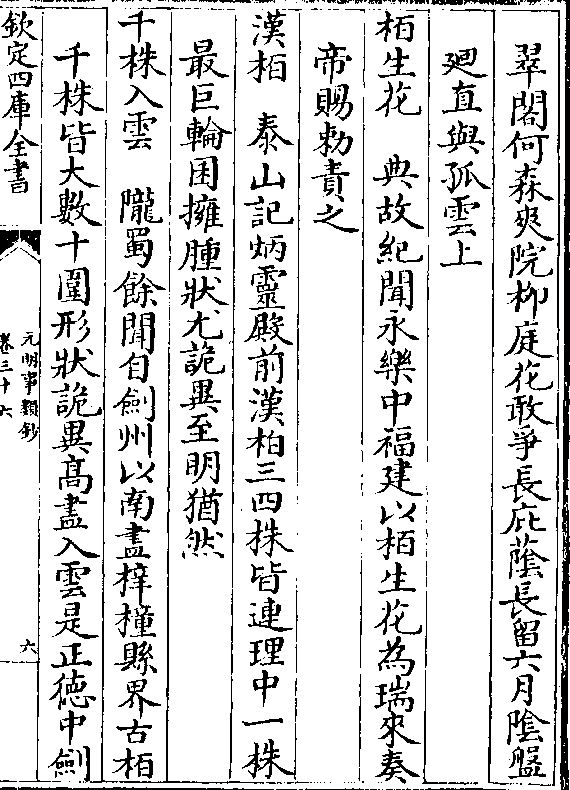 翠閣何森爽院柳庭花敢爭長庇蔭長留六月陰盤
廻直與孤雲上
栢生花　典故紀聞永樂中福建以栢生花為瑞來奏
帝賜勅責之
漢栢　泰山記炳靈殿前漢柏三四株皆連理中一株
最巨輪囷擁腫狀尤詭異至明猶然
千株入雲　隴蜀餘聞自劍州以南盡梓橦縣界古栢
千株皆大數十圍形狀詭異髙盡入雲是正徳中劍
欽定四庫全書
元明事類鈔
卷三十六
六